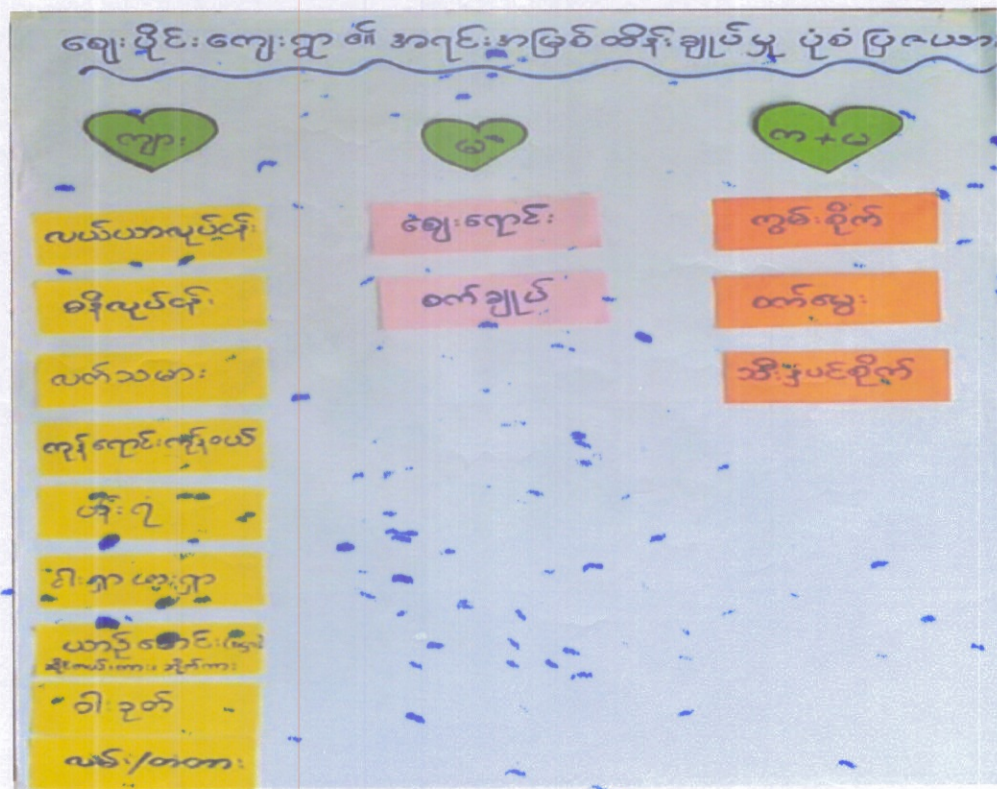 ဈေးပိုင်းကျေးရွာ ၏ အရင်းအမြစ်ထိန်းချုပ်မှု ပုံစံပြဇယား
ကျား
မ
က + မ
လယ်ယာလုပ်ငန်း
ဓနိလုပ်ငန်း
လက်သမား
ကုန်ရောင်းကုန်ဝယ်
ပန်းရံ
ငါးရှာ ဖားရှာ
ယာဉ်မောင်း
ဝါးခုတ်
လမ်း/တံတား
ဈေးရောင်း
စက်ချုပ်
ကွမ်းစိုက်
ဝက်မွေး
သီးနှံပင်စိုက်